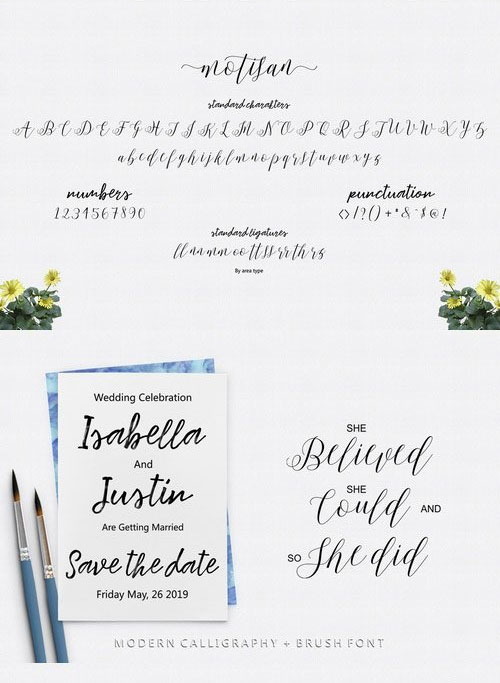 motisan
standard charakters
A B C D E F G H I J K L M N O P Q R S T U V W X Y Z
a b c d e f g h i j k l m n o p q r s t u v w x y z
numbers
1 2 3 4 5 6 7 8 9 0
punctuation
<> / ? ( ) + * & ~ $ @ !
standard ligatures
ll nn mm oo tt ss rr th rs
By area type
Wedding Celebration
Isabella
And
Justin
Are Getting Married
Save the date
Friday May, 26 2019
SHE
Believed
SHE
Could AND
SO She did
MODERN CALLIGRAPHY + BRUSH FONT